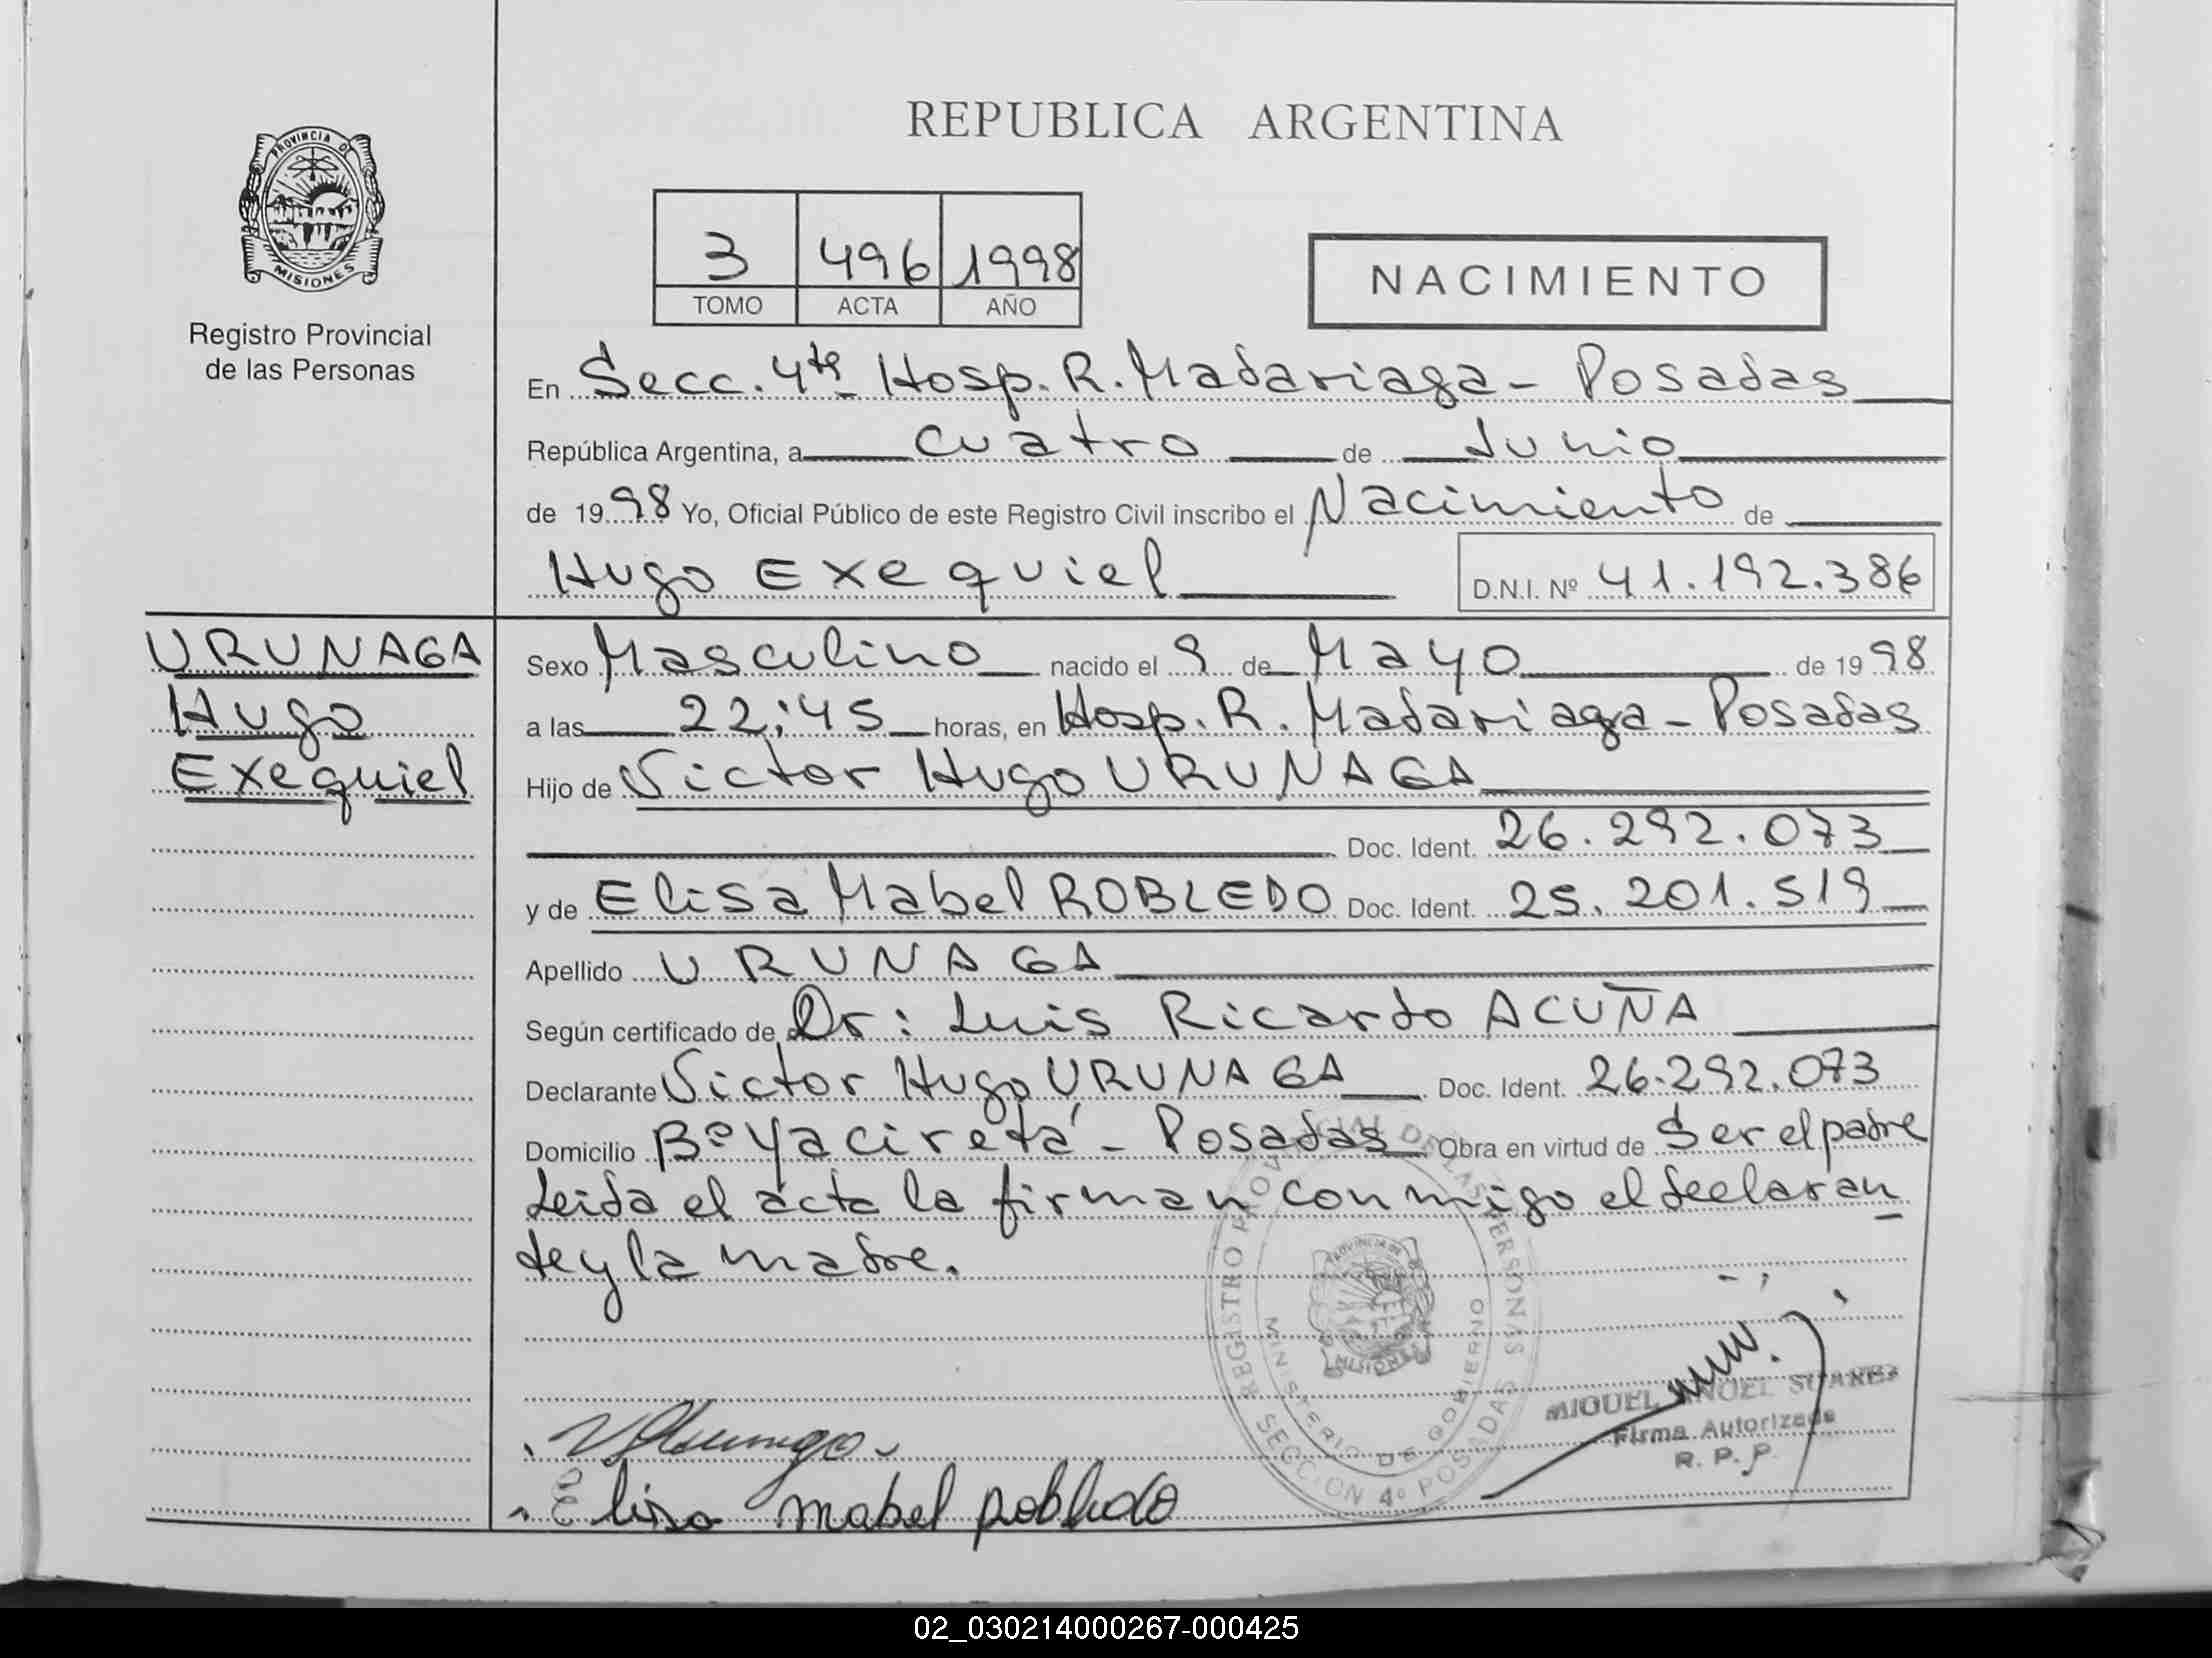 REPUBLICA ARGENTINA
PROVINCIA DE
MISIONES
Registro Provincial
de las Personas
3 496 1998
TOMO ACTA AÑO
NACIMIENTO
En Secc. 4ta Hosp. R. Madariaga - Posadas
República Argentina, a cuatro de Junio
de 1998 Yo, Oficial Público de este Registro Civil inscribo el Nacimiento de
Hugo Exequiel D.N.I. Nº 41.192.386
URUNAGA
Hugo
Exequiel
Sexo Masculino nacido el 9 de Mayo de 1998
a las 22:45 horas, en Hosp. R. Madariaga - Posadas
Hijo de Victor Hugo URUNAGA
Doc. Ident. 26.292.073
y de Elisa Mabel ROBLEDO Doc. Ident. 25.201.519
Apellido URUNAGA
Según certificado de Dr: Luis Ricardo ACUÑA
Declarante Victor Hugo URUNAGA Doc. Ident. 26.292.073
Domicilio Bº Yacireta - Posadas Obra en virtud de Ser el padre
Leida el acta la firman conmigo el declaran
te y la madre.
REGISTRO PROVINCIAL DE LAS PERSONAS
MINISTERIO DE GOBIERNO
PROVINCIA DE
MISIONES
SECCION 4º POSADAS
MIGUEL ANGEL SUAREZ
Firma Autorizada
R. P. P.
Elisa mabel Robledo
02_030214000267-000425